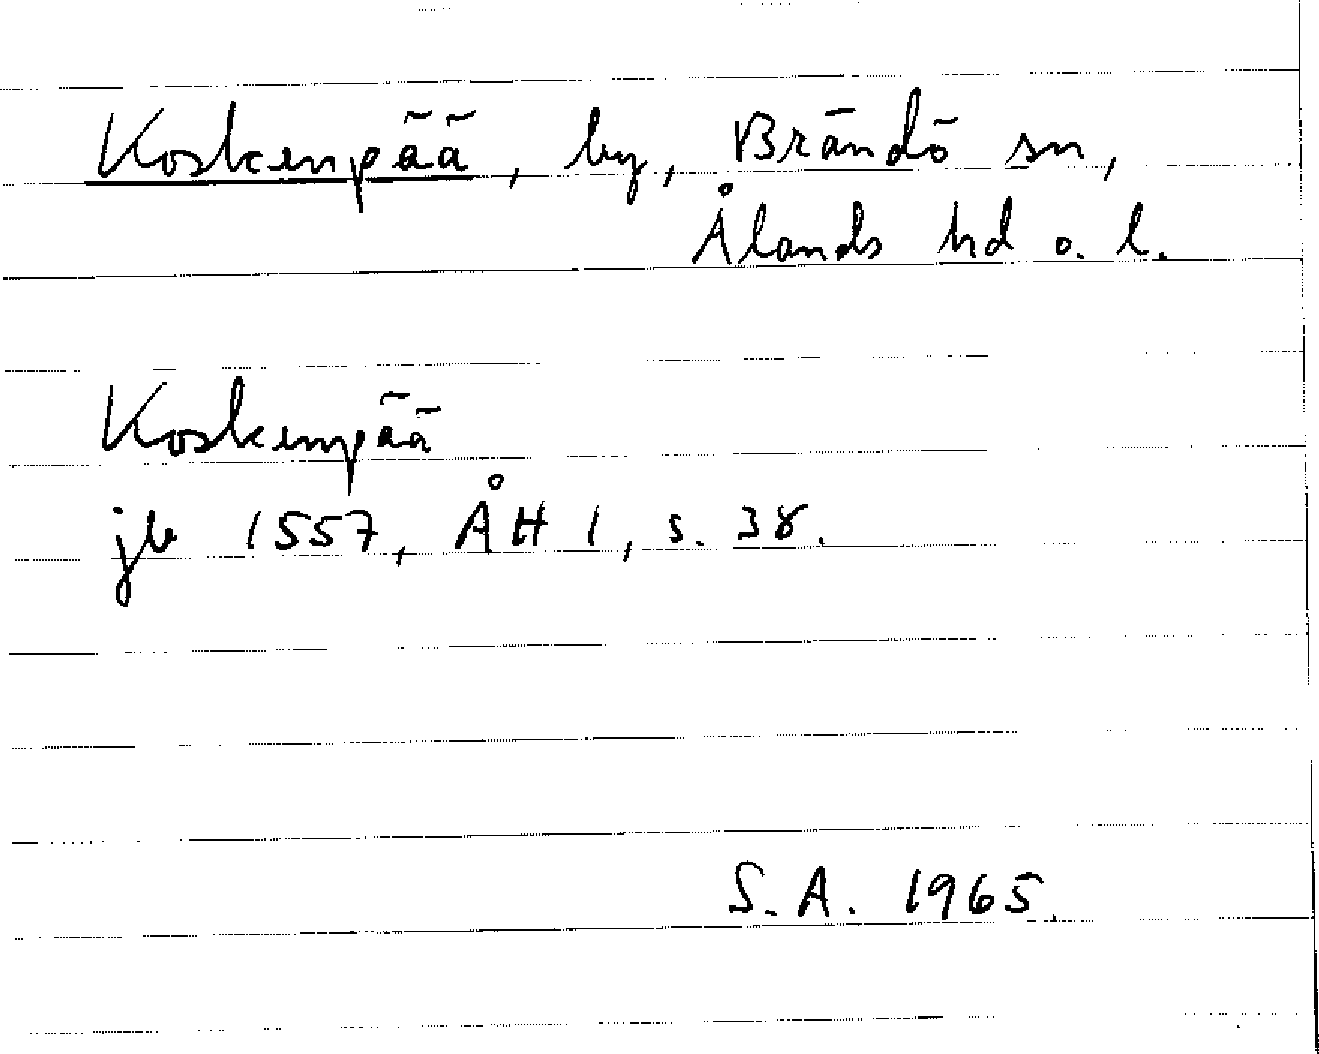 Koskenpää, by, Brändö sn,
Ålands hd o. l.
Koskenpää
jb 1557, ÅH 1, s. 38.
S.A. 1965.